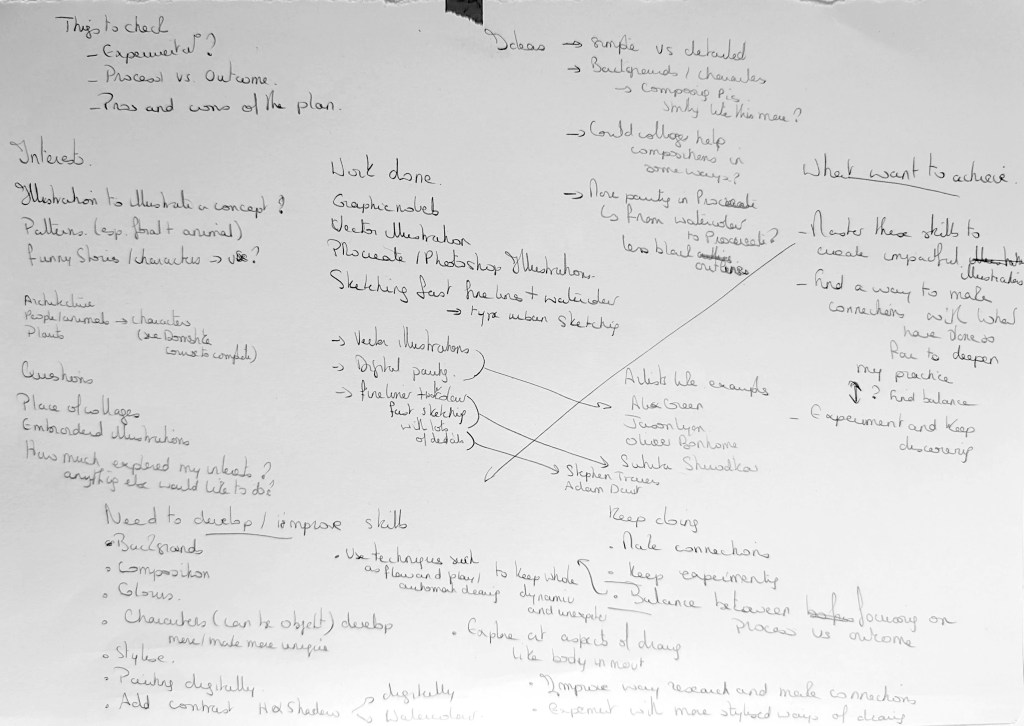 Things to check
- Experimental?
- Process vs. Outcome.
- Pros and cons of the plan.
Ideas → simple vs detailed
→ Backgrounds / characters
→ Composing pic
like this more?
→ Could collage help
compositions in
some ways?
→ More painting in Procreate
↳ from watercolor
to Procreate?
less black outlines
Interests.
Illustration to illustrate a concept?
Patterns. (esp. floral + animal)
Funny Stories / characters →
Architecture
People/animals → characters
Plants (see Domestika
course to complete)
Questions
Place of collages
Embroidered illustrations
How much explored my interests?
anything else would like to do?
Work done.
Graphic novels
Vector Illustration
Procreate / Photoshop Illustrations.
Sketching fast fineliners + watercolor
→ type urban sketching
→ Vector illustrations
→ Digital painting.
→ fineliner +
fast sketching
with lots
of details
Artists like examples
Alex Green
Jason Lyon
Oliver Bonhomme
Suhita Shirodkar
Stephen Travers
What want to achieve.
- Master these skills to
create impactful
illustrations
- Find a way to make
connections with what
have done so
far to deepen
my practice
↕ ? Find balance
- Experiment and keep
discovering
Need to develop / improve skills
• Backgrounds
• Composition
• Colours.
• Characters (can be object) develop
more/make more unique
• Stylise.
• Painting digitally
• Add contrast
digitally
Watercolour
• Use techniques such
as flow and play/
automatic drawing
to keep whole
dynamic
and
Keep doing
• Make connections
• Keep experimenting
• Balance between focusing on
process vs outcome
• Explore art aspects of drawing
like body in
• Improve way research and make connections
• Experiment with more stylised ways of drawing